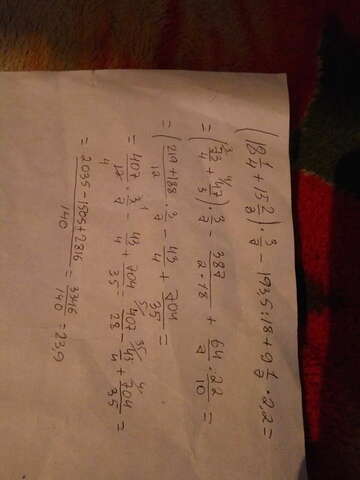 (18 1/4 + 15 2/3) · 3/7 - 193,5:18 + 9 1/7 · 2,2 =
= (73/4 + 47/3) · 3/7 - 387/2·18 + 64/7 · 22/10 =
= (219+188/12 · 3/7 - 43/4 + 704/35 =
= 407/12 · 3/7 - 43/4 + 704/35 = 407/28 - 43/4 + 704/35 =
= 2035-1505+2816/140 = 3346/140 = 23,9